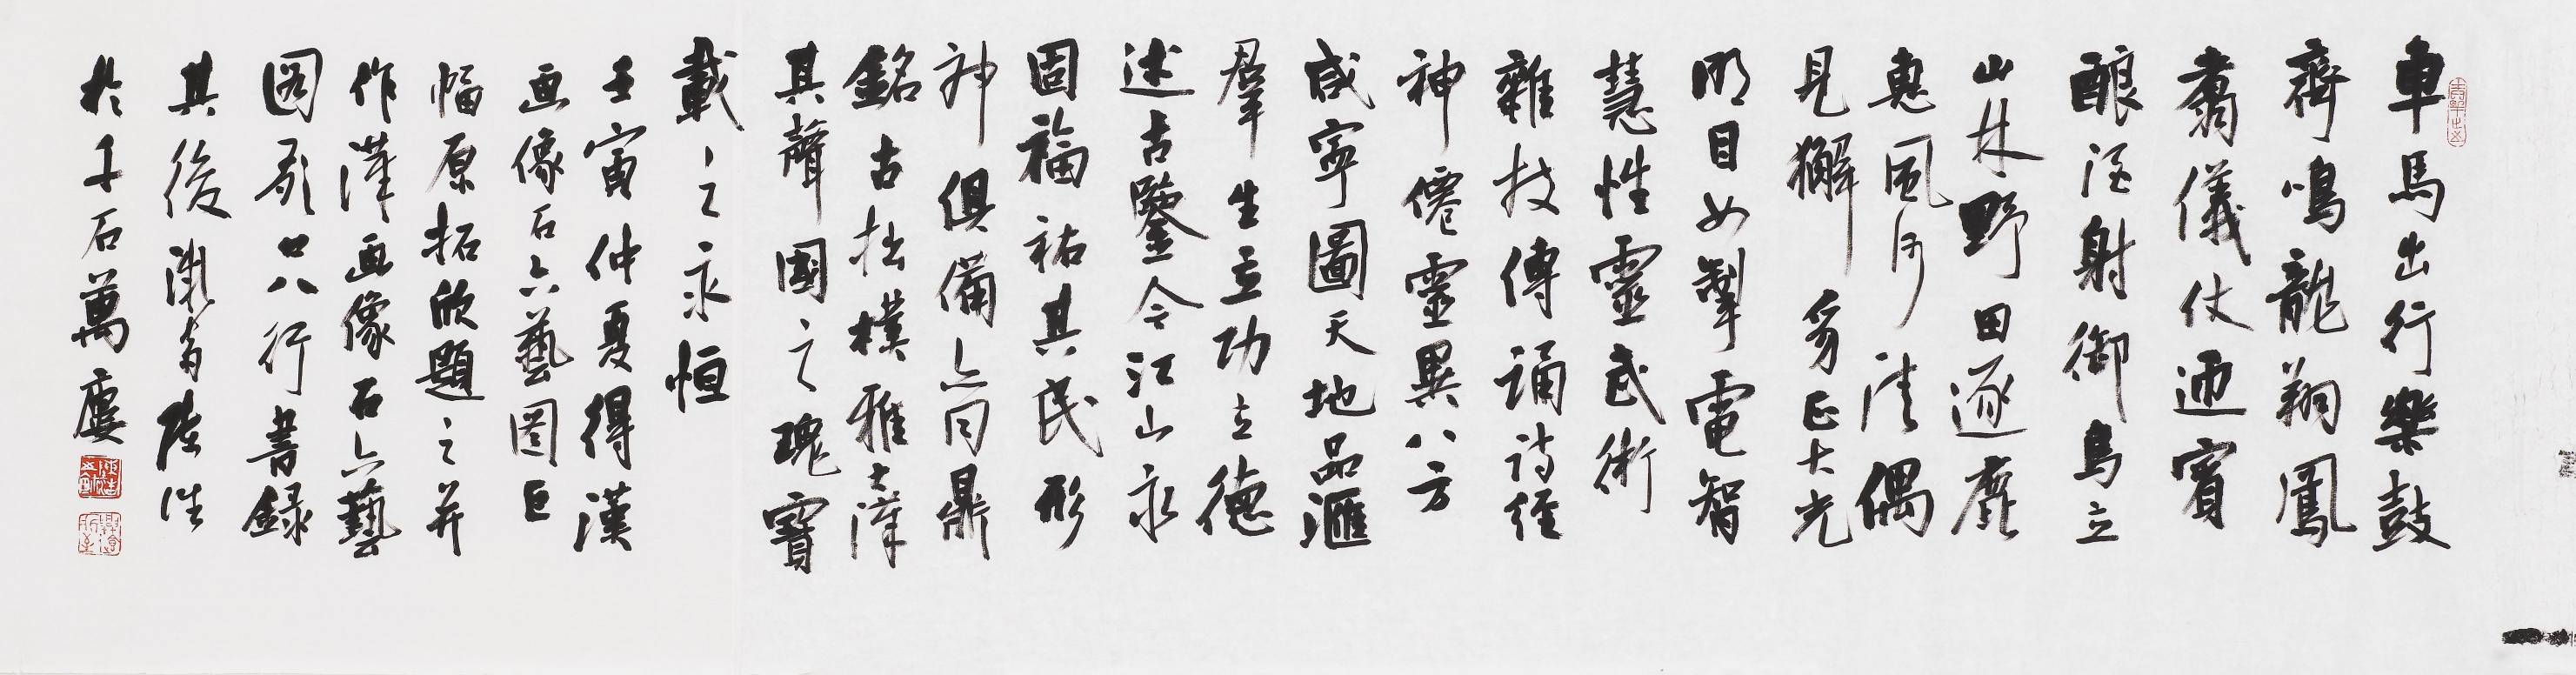 車馬出行樂鼓
齊鳴龍翔鳳
翥儀仗迎賓
釀酒射御鳥立
山林野田逐鹿
惠風河清偶
見獬豸正大光
明目如掣電智
慧性靈武術
雜技傳誦詩經
神僊靈異八方
咸寧圖天地品滙
羣生立功立德
述古鑒今江山永
固福祐其民形
神俱備六同鼎
銘古拙樸雅大漢
其聲國之瑰寶
載之永恒
壬寅仲夏得漢
画像石六藝图巨
幅原拓欣題之并
作漢画像石六藝
图歌只八行書録
其後潄翁陸浩
於千石萬廔